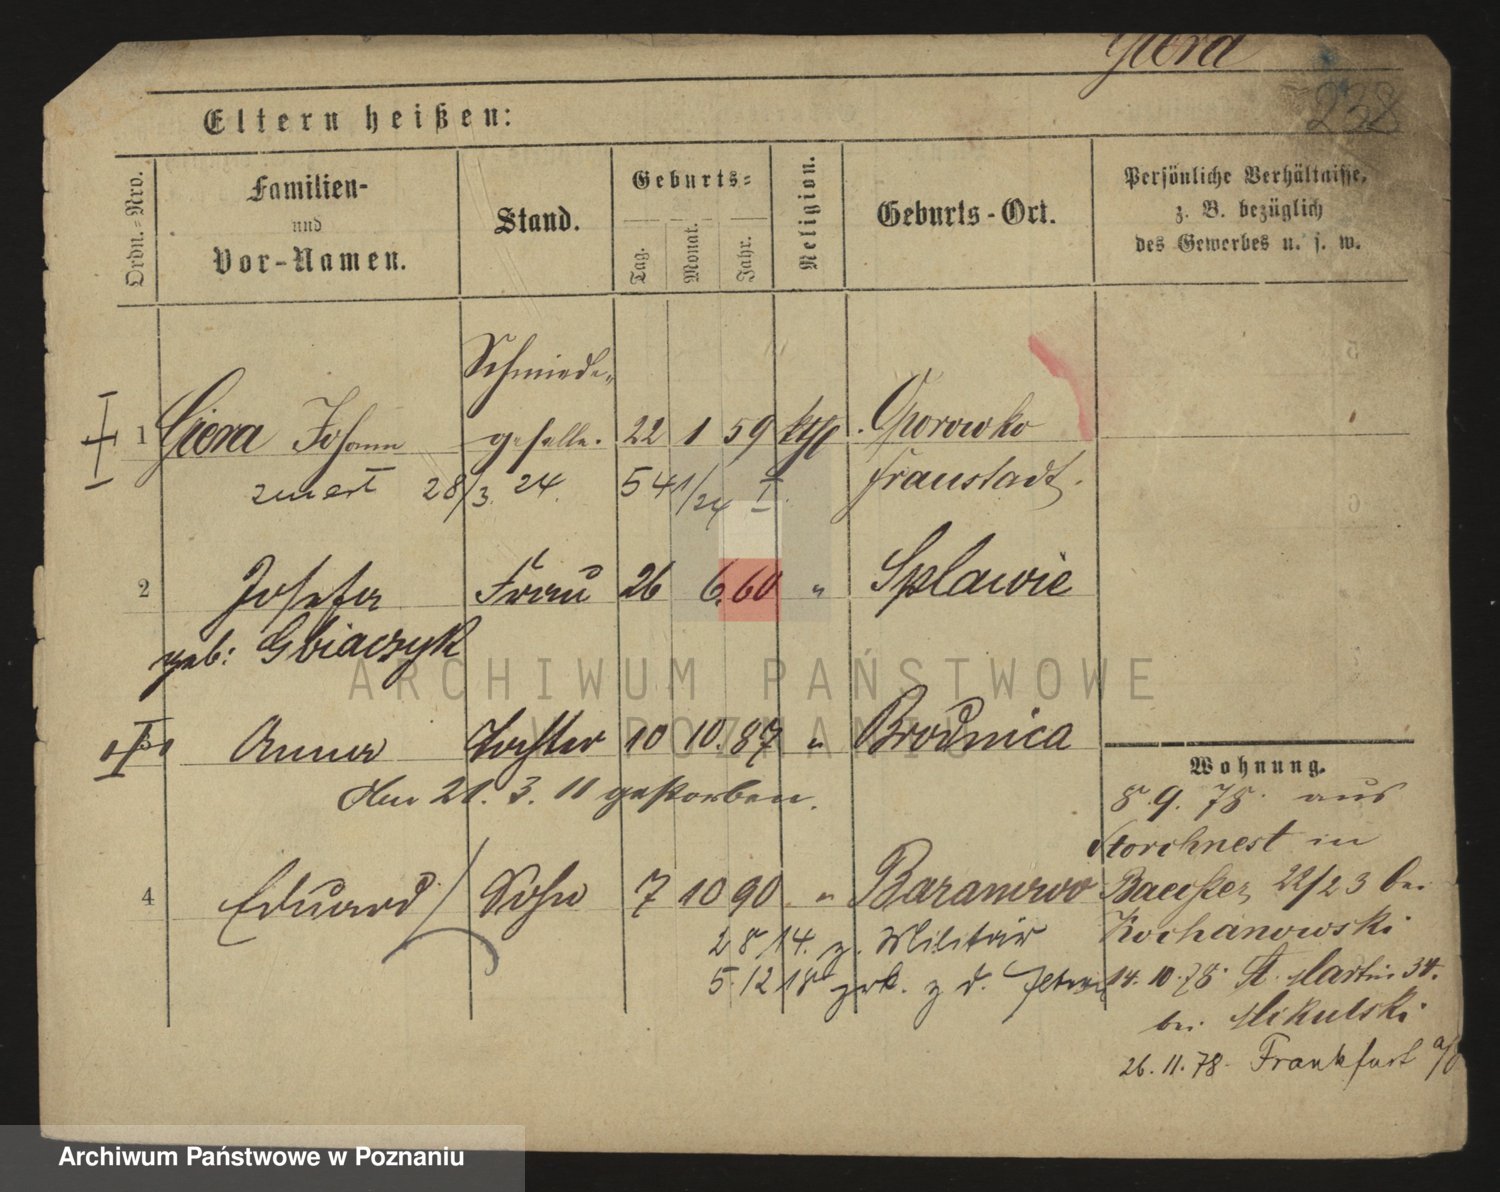 Giera
238
Eltern heißen:
Ordn.-Nro.
Familien- und Vor-Namen.
Stand.
Geburts-
Tag.
Monat.
Jahr.
Religion.
Geburts-Ort.
Persönliche Verhältnisse, z. B. bezüglich des Gewerbes u. s. w.
Schmiede-
1 Giera Johann geselle. 22 1 59 kth. Oporowko
28/3. 24. 54 1/24 I. Fraustadt.
2 Josefa Frau 26 6. 60 " Splawie
geb: Gbiaczyk
3 Anna Tochter 10 10. 87 " Brodnica
Am 21. 3. 11 gestorben.
4 Eduard Sohn 7 10 90 " Baranowo
2 8 14. z. Militär
5. 12 18 zrk. z d.
Wohnung.
8. 9. 78. aus
Storchnest in
Baecker 22/23 bei
Kochanowski
14. 10. 78. St. Martin 34.
bei Mikulski
26. 11. 78. Frankfurt a/O
ARCHIWUM PAŃSTWOWE
W POZNANIU
Archiwum Państwowe w Poznaniu